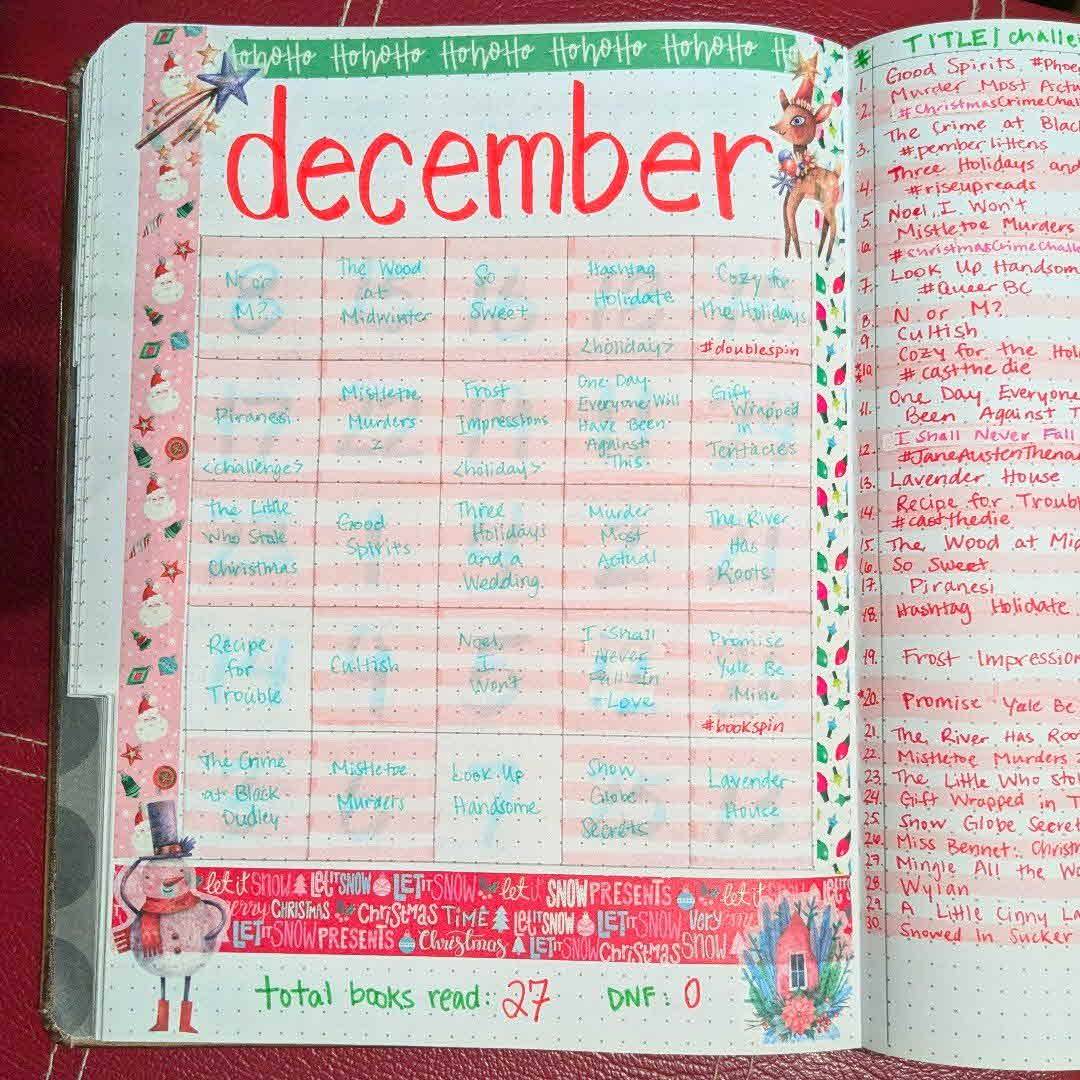 HoHoHo HoHoHo HoHoHo HoHoHo HoHoHo Ho
december
N or
M?
The Wood
at
Midwinter
So
Sweet
Hashtag
Holidate
<holiday>
Cozy for
the Holidays
#doublespin
Piranesi
<challenge>
Mistletoe
Murders
2
Frost
Impressions
<holiday>
One Day
Everyone Will
Have Been
Against
This
Gift
Wrapped
in
Tentacles
The Little
Who Stole
Christmas
Good
Spirits
Three
Holidays
and a
Wedding
Murder
Most
Actual
The River
Has
Roots
Recipe
for
Trouble
Cultish
Noel,
I
Won't
I Shall
Never
Fall In
Love
Promise
Yule Be
Mine
#bookspin
The Crime
at Black
Dudley
Mistletoe
Murders
Look Up
Handsome
Snow
Globe
Secrets
Lavender
House
let it SNOW LET IT SNOW LET IT SNOW let it SNOW PRESENTS let it SNOW
merry CHRISTMAS Christmas TIME LET IT SNOW LET IT SNOW very
LET IT SNOW PRESENTS Christmas LET IT SNOW Christmas SNOW
total books read: 27 DNF: 0
# TITLE/challe
1. Good Spirits #Phoe
2. Murder Most Actu
#ChristmasCrimeChal
3. The Crime at Blac
#pemberlittens
4. Three Holidays and
#riseupreads
5. Noel, I Won't
6. Mistletoe Murders
#ChristmasCrimeChalle
7. Look Up Handsom
#QueerBC
8. N or M?
9. Cultish
*10. Cozy for the Hol
#castthedie
11. One Day Everyone
Been Against T
12. I Shall Never Fall
#JaneAustenThena
13. Lavender House
14. Recipe for Troubl
#castthedie
15. The Wood at Mid
16. So Sweet
17. Piranesi
18. Hashtag Holidate
19. Frost Impression
*20. Promise Yule Be
21. The River Has Roo
22. Mistletoe Murders 2
23. The Little Who Sto
24. Gift Wrapped in T
25. Snow Globe Secret
26. Miss Bennet: Christm
27. Mingle All the Wa
28. Wylan
29. A Little Cinny La
30. Snowed In Sucker